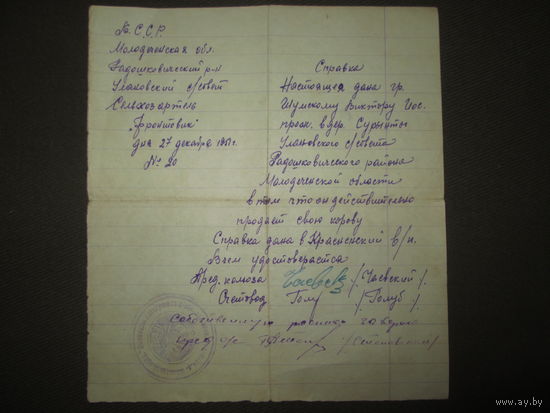 Б.С.С.Р.
Молодеченская обл.
Радошковический р-н
Улановский с/совет
Сельхозартель
"Фронтовик"
дня 27 декабря 1951 г.
№ 20
Справка
Настоящая дана гр.
Шумскому Виктору Иос.
прож. в дер. Сурынты
Улановского с/совета
Радошковического района
Молодеченской области
в том что он действительно
продает свою корову
Справка дана в Красненский в/ч.
В чем удостоверяется
Пред. колхоза /Чаевский/.
Счетовод Голуб /Голуб/.
Собственную роспись заверяю
пред с/с
www.ay.by